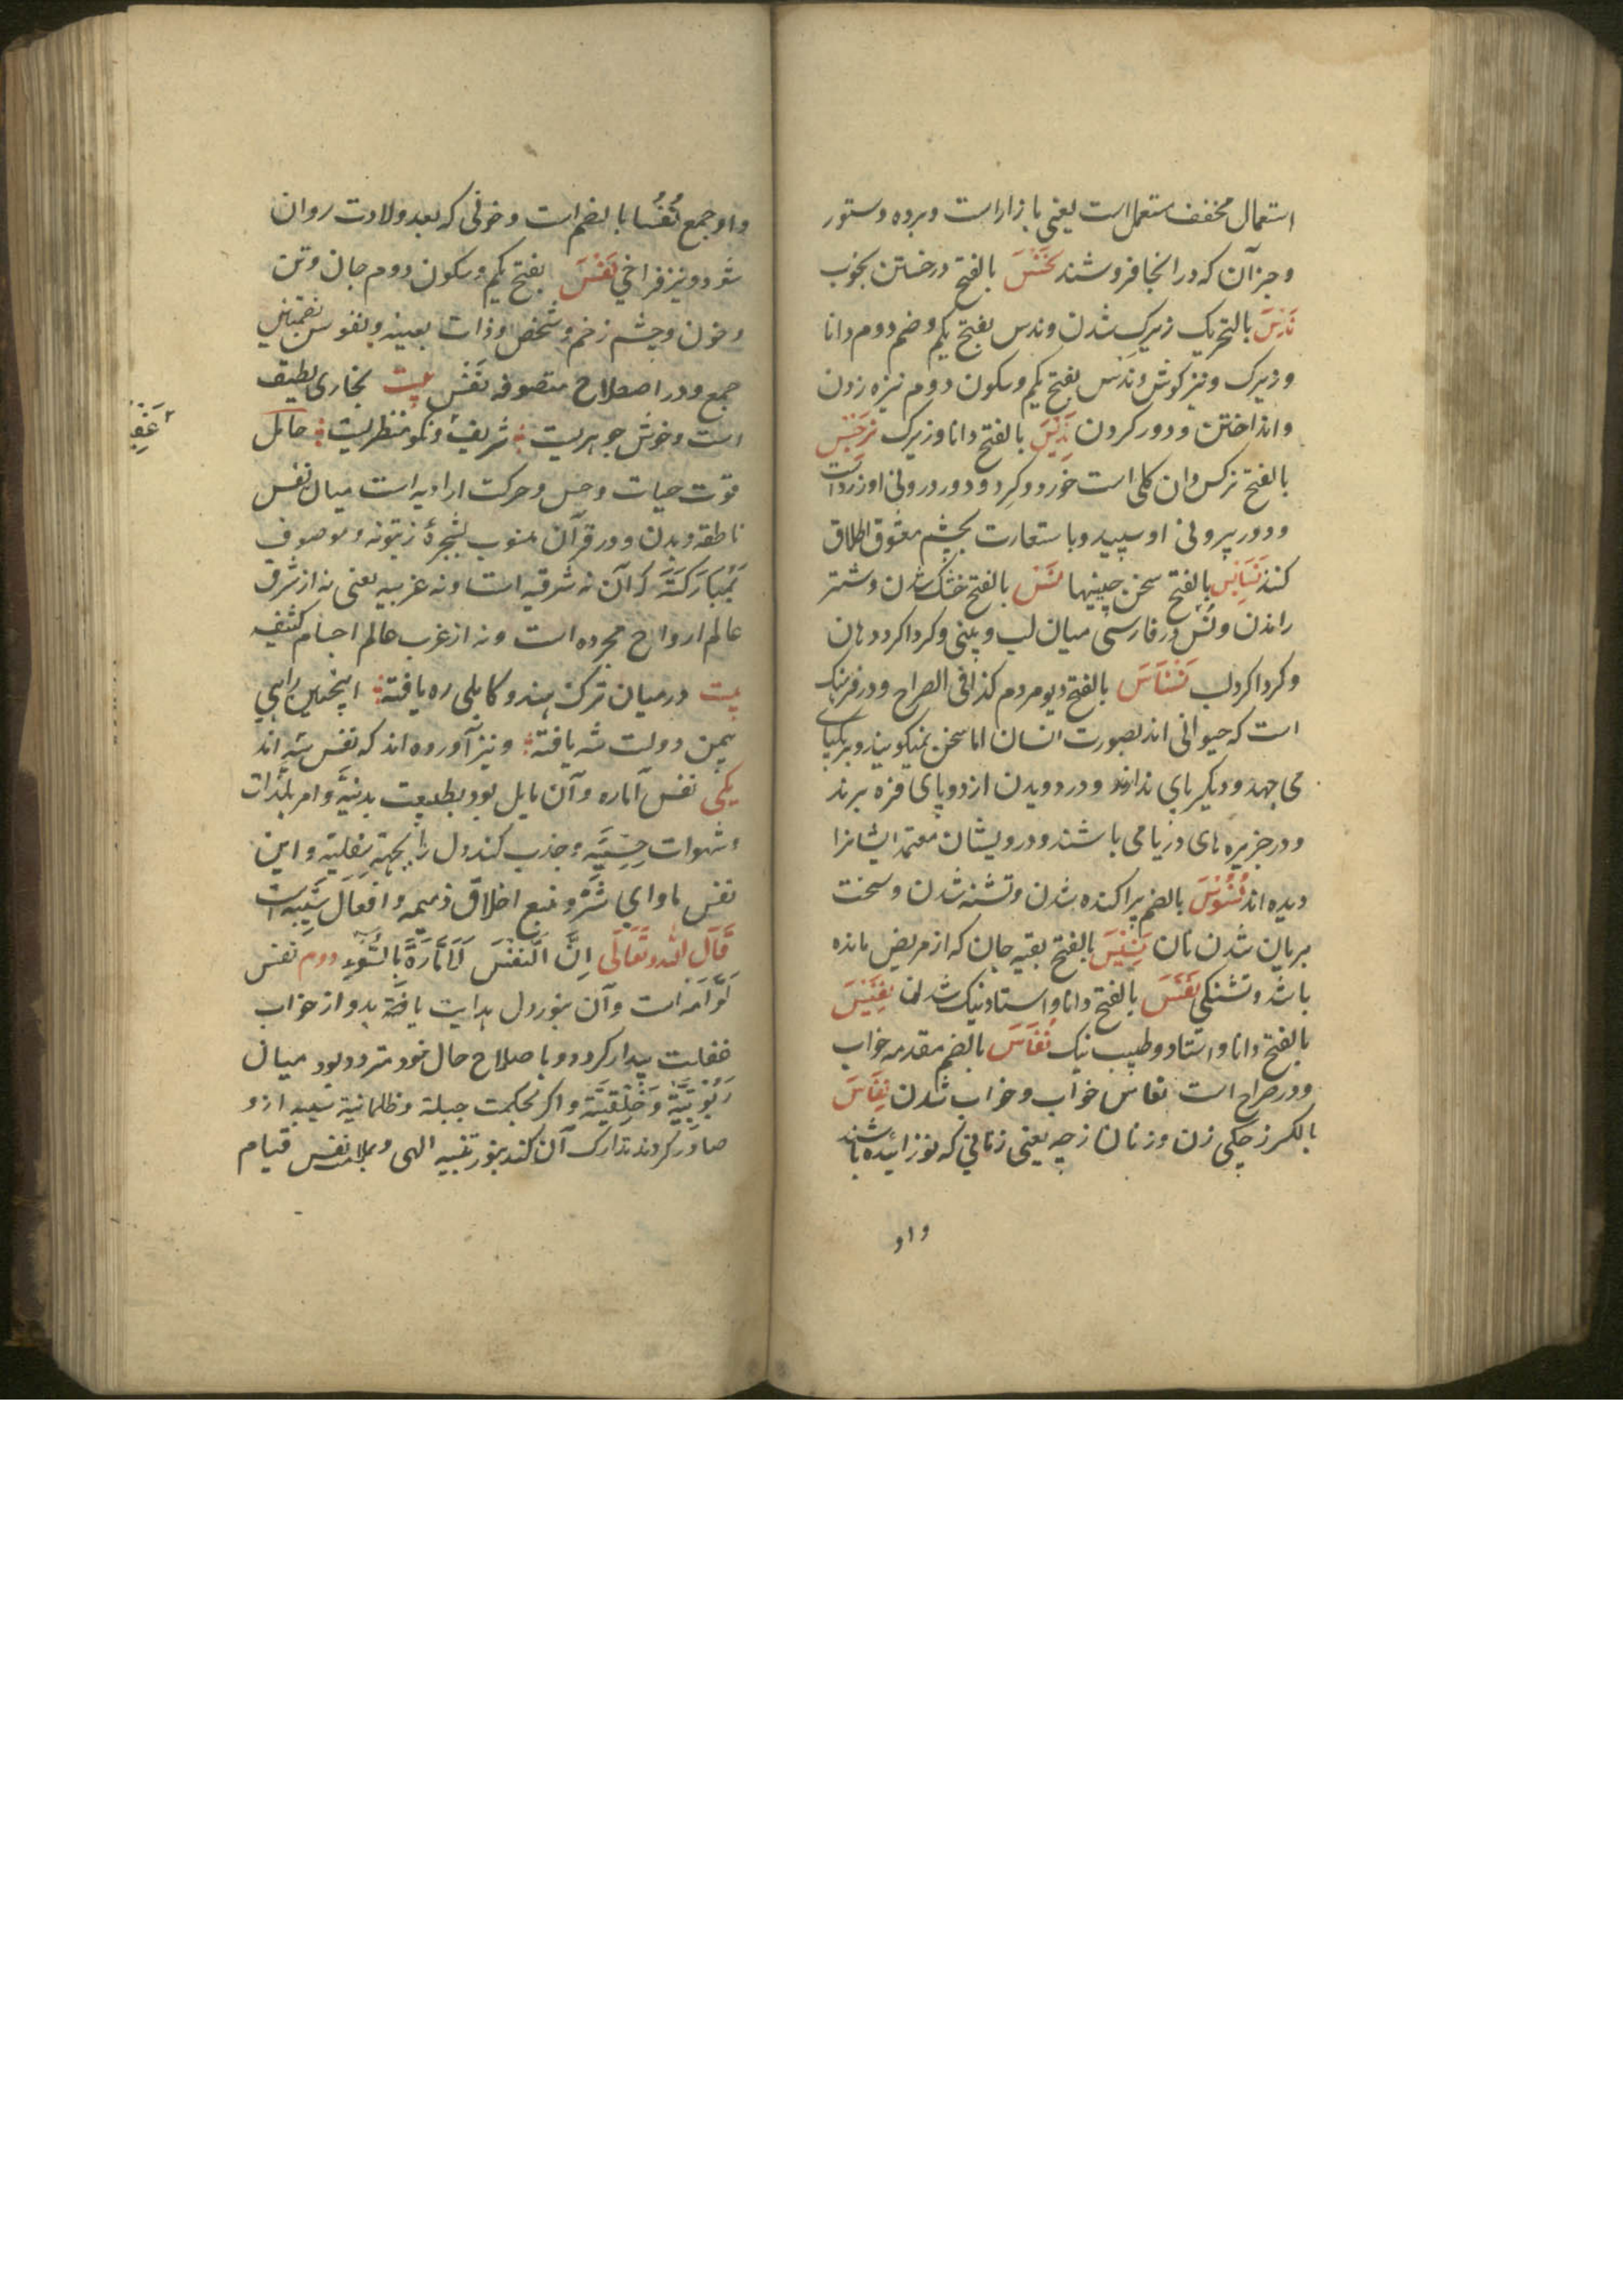 استعمال مخفف مستعمل است یعنی بازار است و برده و ستور
و جز آن که در انجا فروشند نخس بالفتح درخستن بچوب
ندس بالتحریک زیرک شدن و ندس بفتح یکم و ضم دوم دانا
و زیرک و نیز کوش و ندس بفتح یکم و سکون دوم نیزه زدن
و انداختن و دور کردن ندیس بالفتح دانا و زیرک نرجس
بالفتح نرکس و ان کلی است خورد و کرد و دور درونی او زرد است
و دور بیرونی او سپید و باستعارت بچشم معشوق اطلاق
کنند بالفتح سخن چینیها نس بالفتح خشک شدن و شتر
راندن و نس در فارسی میان لب و بینی و کرداکرد دهان
و کرداکرد لب نسناس بالفتح دیو مردم کذا فی الصراح و در فرهنک
است که حیوانی اند بصورت انسان اما سخن نمیکویند و بر یکپای
می جهد و دیکر پای ندارند و در دویدن از دو پای فزه برند
و در جزیره های دریا می باشند و درویشان معتمد ایشانرا
دیده اند نسوس بالضم پراکنده شدن و تشنه شدن و سخت
بریان شدن نان نسیس بالفتح بقیه جان که از مریض مانده
باشد و تشنکی بالفتح دانا و استاد نیک شدن
بالفتح دانا و استاد و طبیب نیک نفاس بالضم مقدمه خواب
و در صراح است نفاس خواب و خواب شدن نفاس
بالکسر زچکی زن و زنان زچه یعنی زنانی که نوزائیده باشند
واو
واو جمع نفسا بالضم است و خونی که بعد ولادت روان
شود و نیز فراخی نفس بفتح یکم و سکون دوم جان و تن
و خون و چشم زخم و شخص و ذات بعینه و نفوس بضمتین
جمع و در اصطلاح متصوفه نفس بیت بخاری لطیف
است و خوش جوهریست شریف و نکو منظریست حامل
قوت حیات و حس و حرکت ارادیه است میان نفس
ناطقه و بدن و در قرآن منسوب بشجرهٔ زیتونه و موصوف
بمبارکة که آن نه شرقیه است و نه غربیه یعنی نه از شرق
عالم ارواح مجرده است و نه از غرب عالم اجسام کثیفه
بیت در میان ترک هندو کابلی ره یافته اینچنین راهی
بیمن دولت شه یافته و نیز آورده اند که نفس سه اند
یکی نفس اماره و آن مایل بود بطبیعت بدنیه و امر بلذات
و شهوات حسیه و جذب کند دل را بجهة سفلیه و این
نفس ماوای شر و منبع اخلاق ذمیمه و افعال سیه است
قال الله تعالی ان النفس لامارة بالسوء دوم نفس
لوامه است و آن بنور دل هدایت یافته بدو از خواب
غفلت بیدار کردد و باصلاح حال خود متردد بود میان
ربوبیة و خلقیة و اکر بحکمت جبلة و ظلمانیة ازو
صادر کردند تدارک آن کند بنور تنبیه الهی و بملامت نفس قیام